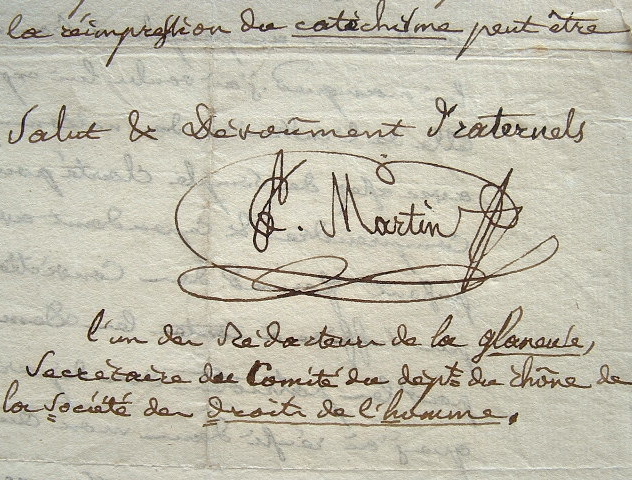 la réimpression du catéchisme peut être
Salut & Dévoûment Fraternels
E. Martin
l'un des Rédacteurs de la glaneuse,
Secrétaire du Comité du dépt. du rhône de
la Société des droits de l'homme.